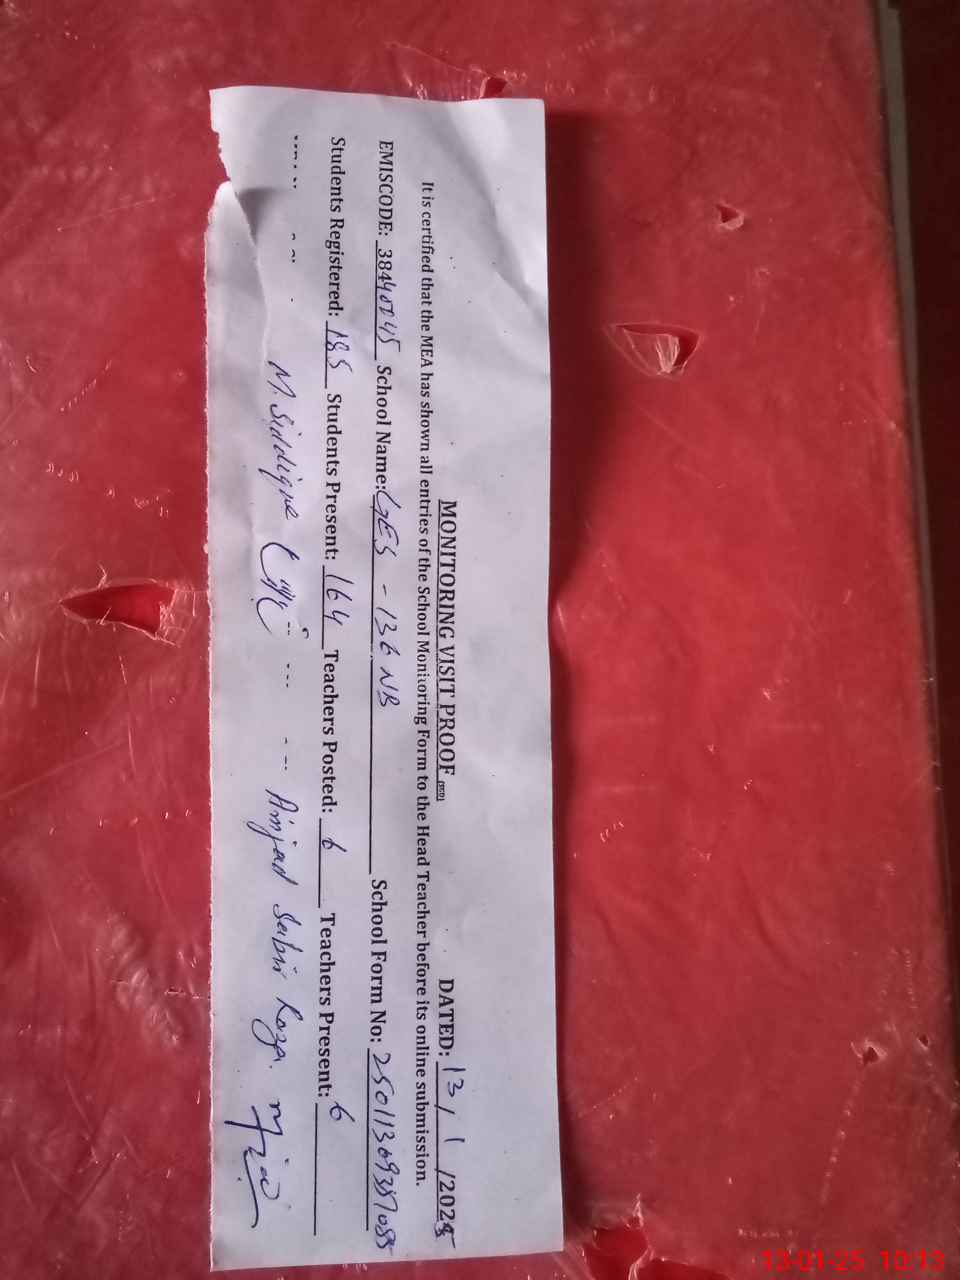 MONITORING VISIT PROOF DATED: 13/1/2025
It is certified that the MEA has shown all entries of the School Monitoring Form to the Head Teacher before its online submission.
EMISCODE: 38440045 School Name: GES - 136 NB School Form No:
Students Registered: 185 Students Present: 164 Teachers Posted: 6 Teachers Present: 6
M. Siddique Amjad Sabir Raza
13-01-25 10:13